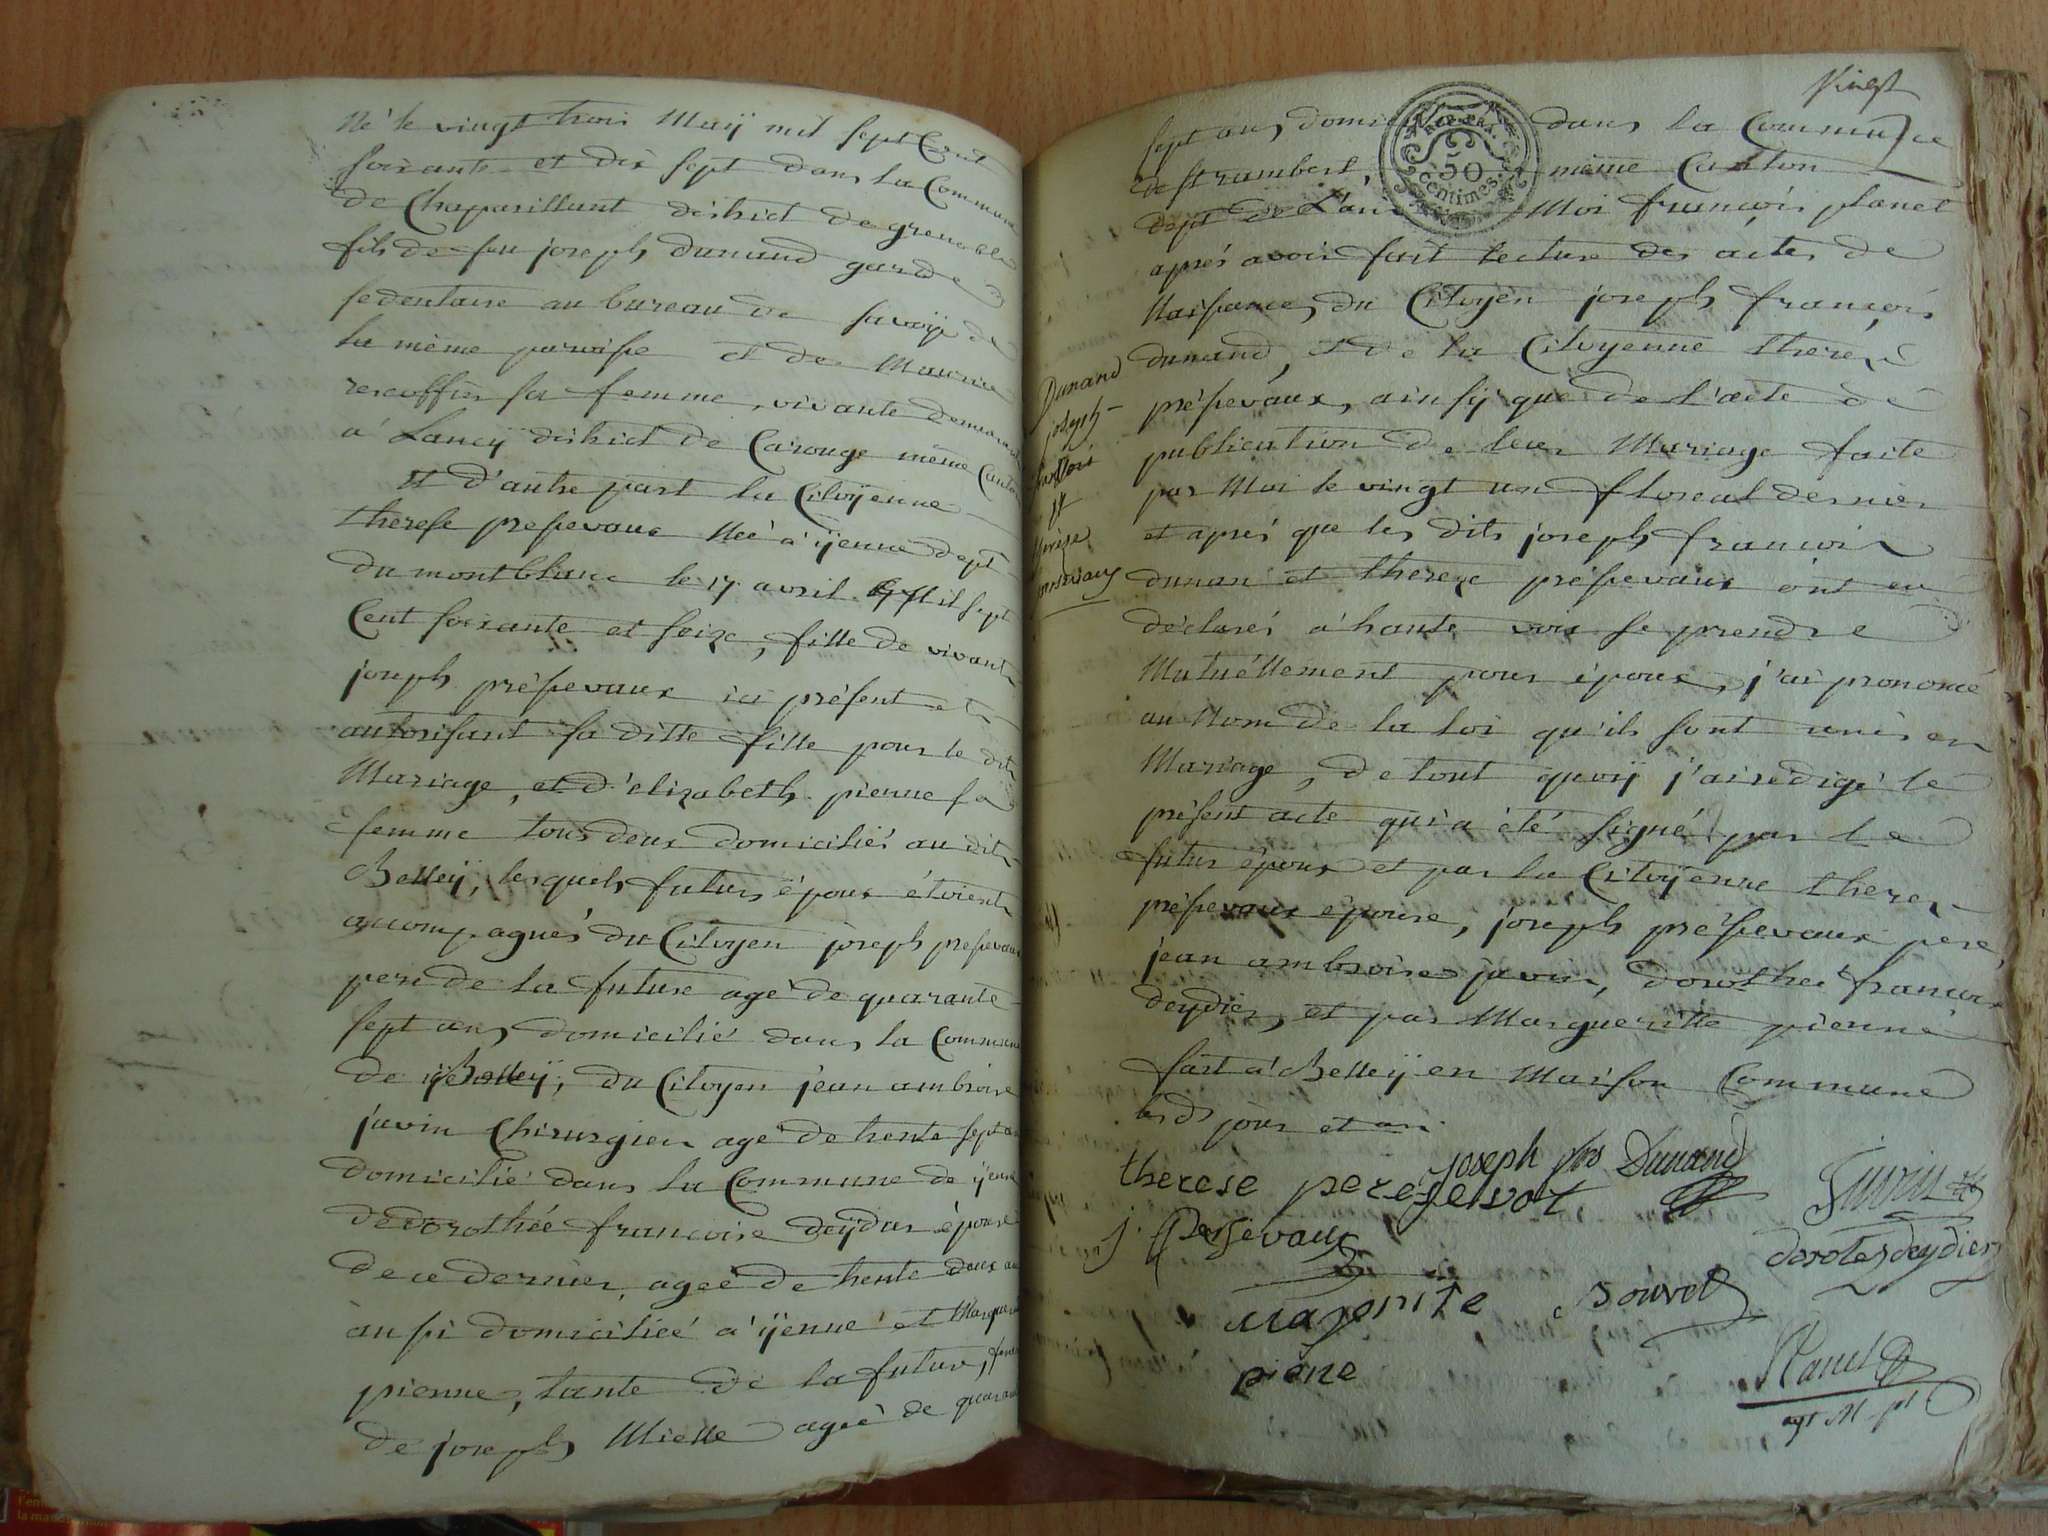 Né le vingt trois May mil sept Cent
soixante et dix sept dans la Commune
de Chaparillant district de grenoble
fils de feu joseph dunand garde
sedentaire au bureau de savoÿe de
la même paroisse et de Maurise
sa femme, vivante demeurant
a Lancÿ district de Carouge même Canton
Et d'autre part la Citoÿenne
therese presevaux Née a ÿenne dept
du montblanc le 17 avril Mil sept
Cent soixante et seize, fille de vivant
joseph présevaux ici présent et
autorisant sa ditte fille pour le dit
Mariage, et d'elizabeth pienne sa
femme tous deux domiciliés au dit
Belleÿ, lesquels futurs époux étoient
accompagnés du Citoyen joseph presevaux
pere de la future agé de quarante
sept ans domicilié dans la Commune
de Belleÿ, du Citoyen jean ambroise
juvin Chirurgien agé de trente sept ans
domicilié dans la Commune de ÿenne
de dorothée francoise deÿdier épouse
de ce dernier, ageé de trente deux ans
aussi domiciliée a ÿenne et Marguerite
pienne, tante de la future, femme
de joseph Mielle ageé de quarante
Vingt
sept ans domi dans la Commune
de st rambert, même Canton
dept de L'ain Moi françois planet
aprés avoir fait lecture des actes de
Naissances du Citoyen joseph françois
dunand, et de la Citoyenne thereze
présevaux, ainsy que de l'acte de
publication de leur Mariage faite
par Moi le vingt un floreal dernier
et aprés que les dits joseph francois
dunan et thereze présevaux ont eu
déclarés a haute voix se prendre
Mutuéllement pour époux, j'ai prononcé
au Nom de la loi qu'ils sont unis en
Mariage, de tout quoÿ j'ai rédigé le
présent acte qui a été signé par le
futur époux et par la Citoÿenne thereze
présevaux épouse, joseph présevaux pere,
jean ambroise juvin, dorothée francoise
deydier, et par Margueritte pienne
fait a Belleÿ en Maison Commune
lesd jour et an.
Dunand
joseph
francois
et
thérèse
REP. FRA.
50
centimes.
joseph fcs Dunand
therese peresevot
Juvin
j. Persevaux
dorote deydier
magorite Bouvet
piene
Planet
agt M pl